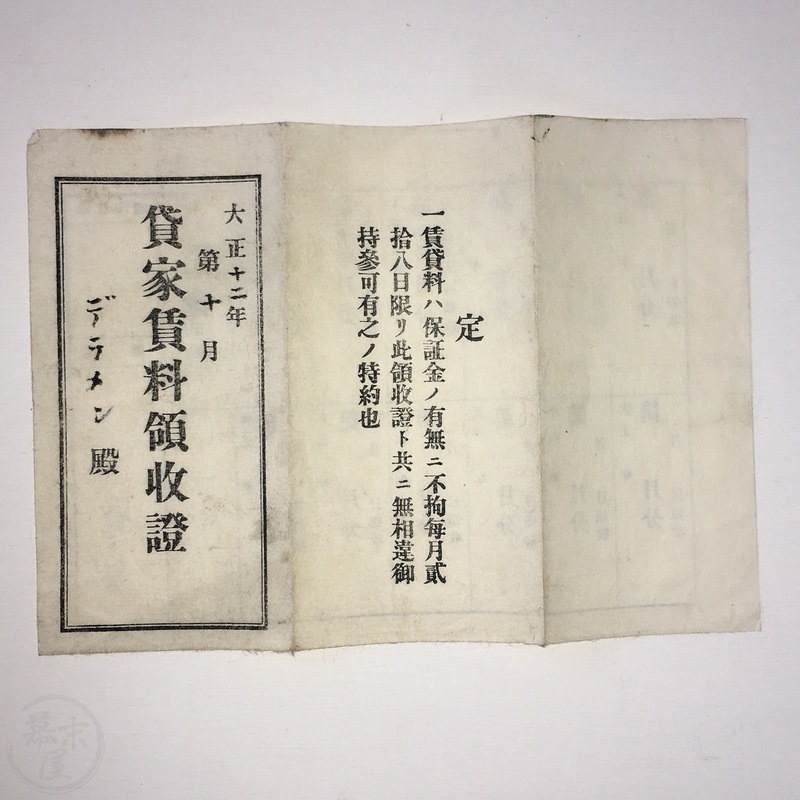 定
一賃貸料ハ保証金ノ有無ニ不拘每月貳
拾八日限リ此領收證ト共ニ無相違御
持參可有之ノ特約也
大正十二年
第十月
貸家賃料領收證
デラメン殿
幕末屋